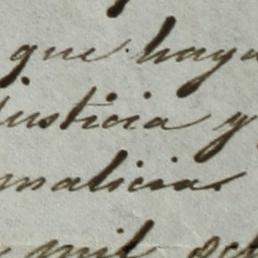 que haya
justicia y
malicia
mil oct